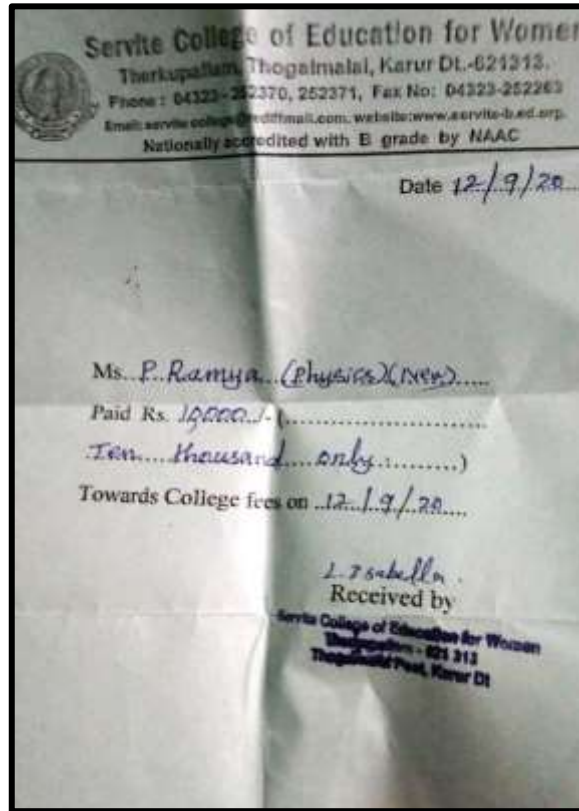 Servite College of Education for Women
Therkupallam, Thogaimalai, Karur Dt.-621313.
Phone : 04323-252370, 252371, Fax No: 04323-252263
Email: servite college@rediffmail.com, website:www.servite-b.ed.org.
Nationally accredited with B grade by NAAC
Date 12/9/20
Ms. P. Ramya (Physics)
Paid Rs. 10,000/- (........................
Ten thousand only .........)
Towards College fees on 12/9/20
L. Isabella
Received by
Servite College of Education for Women
Therkupallam - 621 313
Thogaimalai Post, Karur Dt